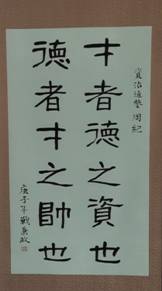 資治通鑒 周紀
才者德之資也
德者才之帥也
庚子年戰兼政